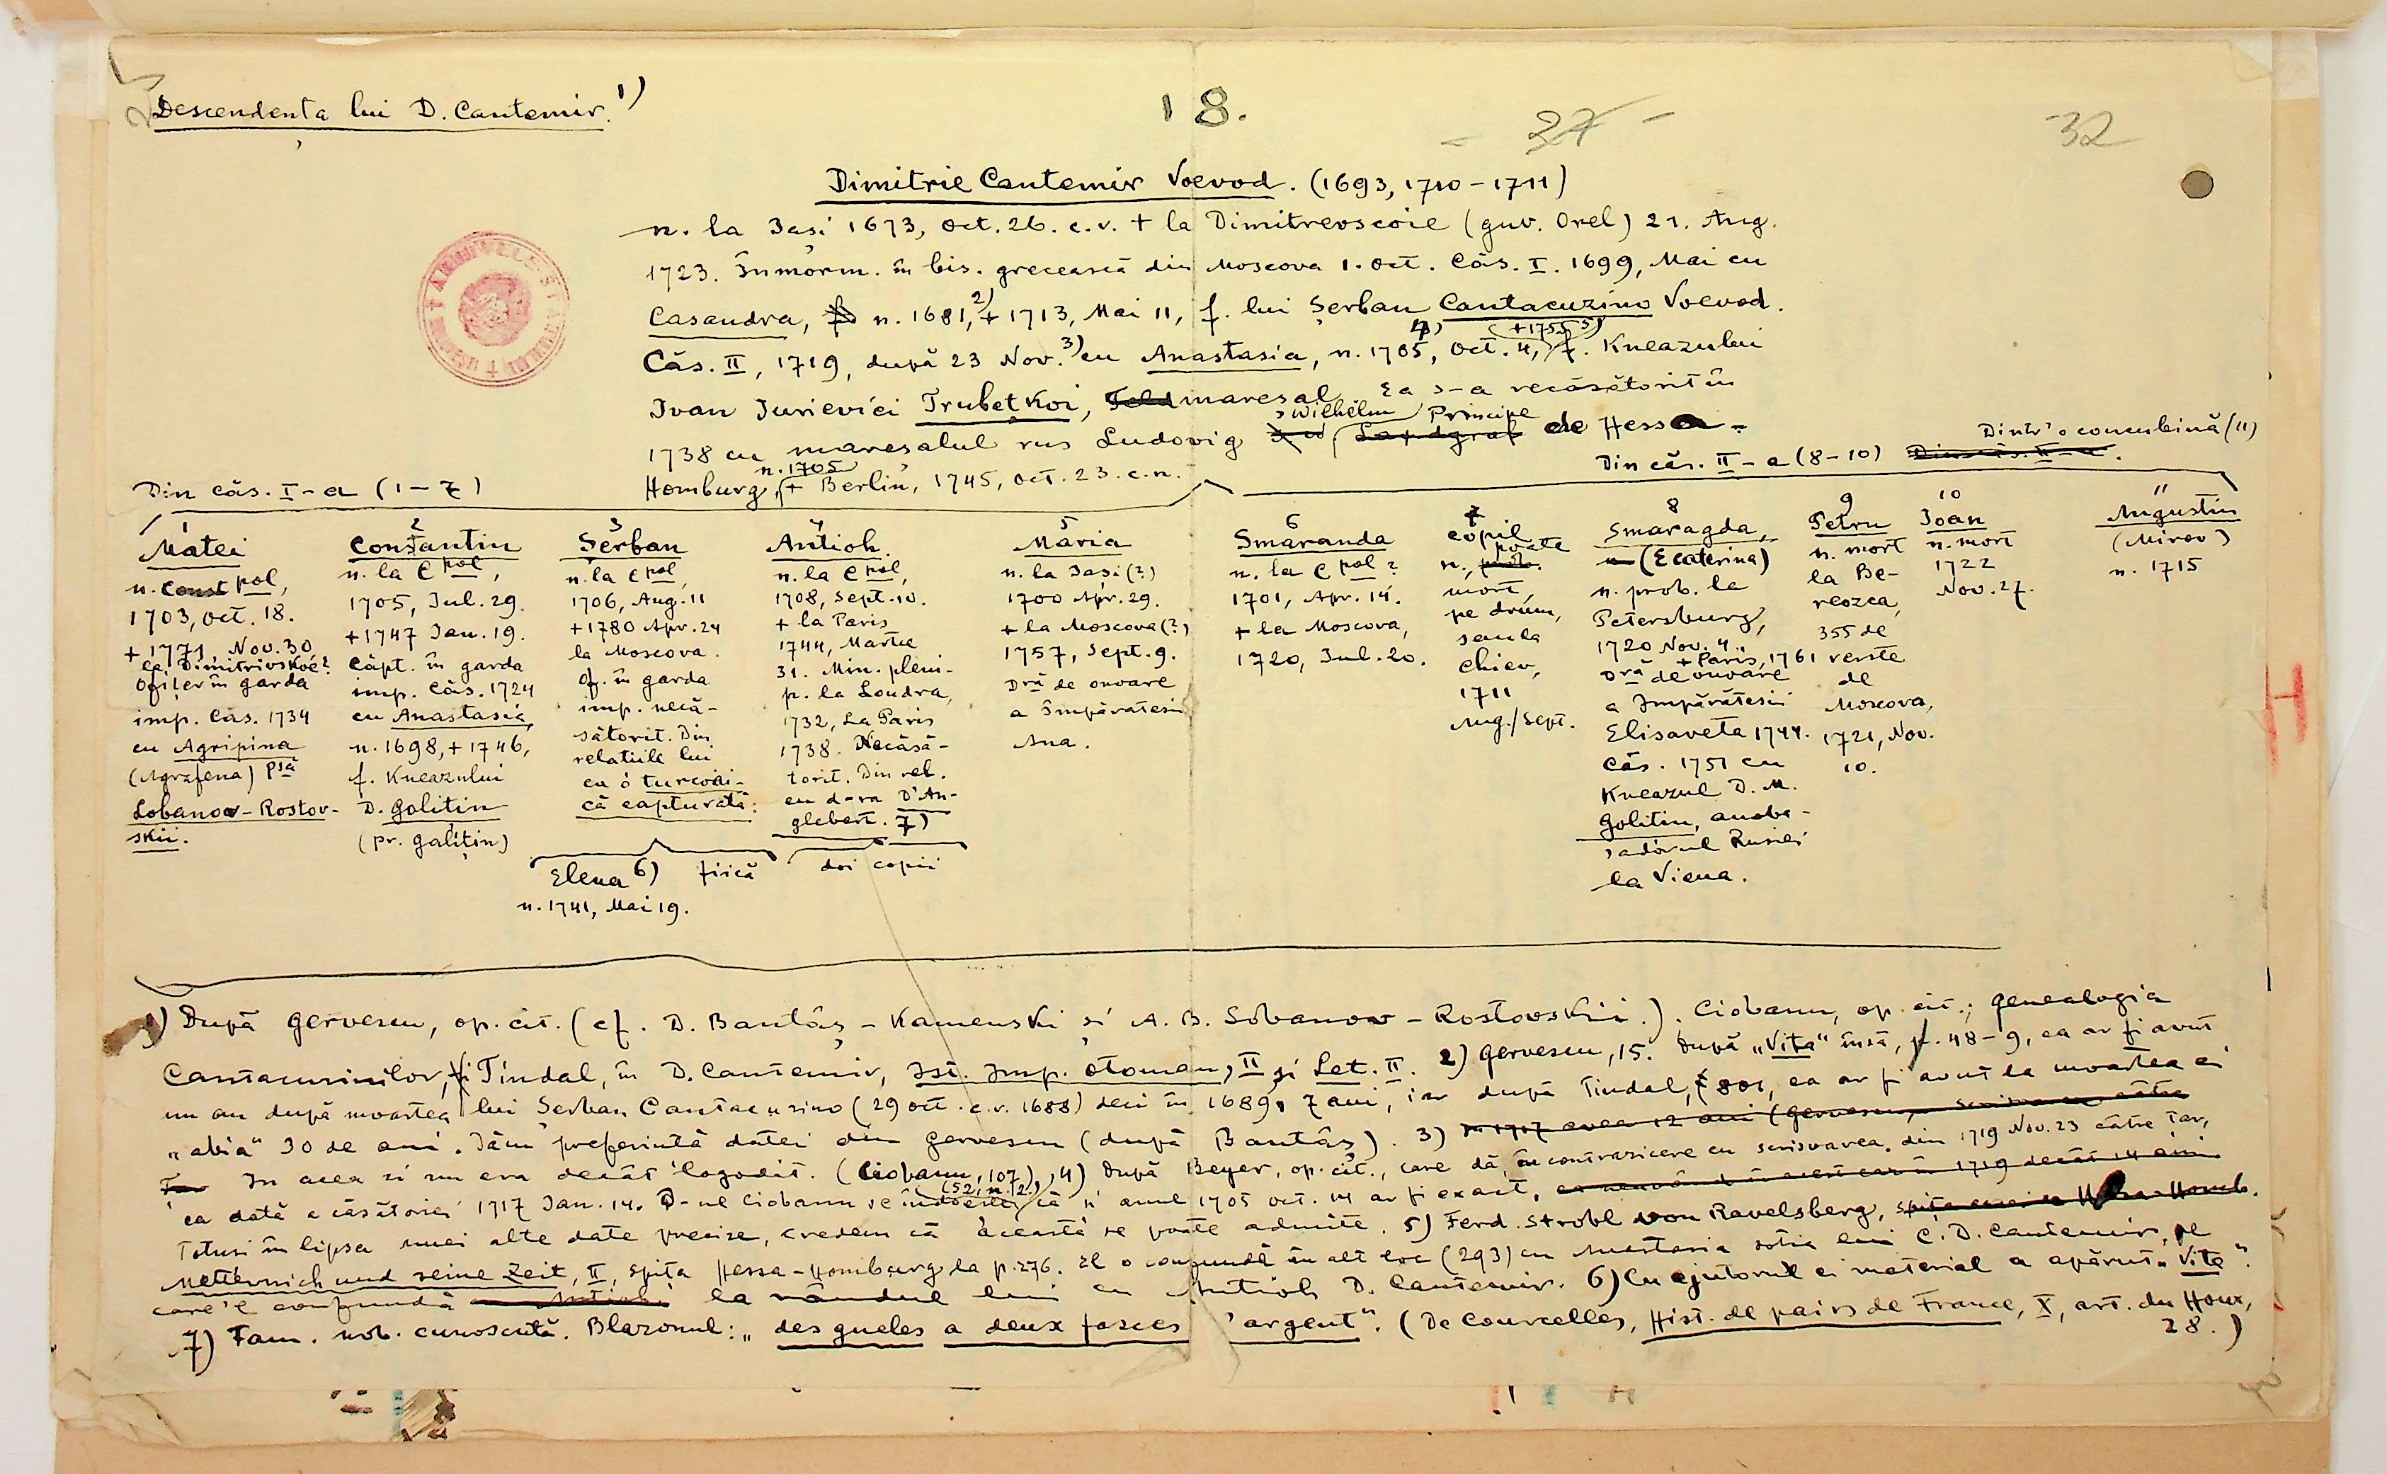 Descendenta lui D. Cantemir. 1)
18.
27
32
Dimitrie Cantemir Voevod. (1693, 1710 – 1711)
n. la Iași 1673, Oct. 26. c.v. + la Dimitrevscoie (guv. Orel) 21. Aug.
1723. Înmorm. în bis. grecească din Moscova 1. Oct. Căs. I. 1699, Mai cu
Casandra, n. 1681, 2) + 1713, Mai 11, f. lui Șerban Cantacuzino Voevod.
Căs. II, 1719, după 23 Nov. 3) cu Anastasia, n. 1705, 4) Oct. 4, (+1755 5) f. Kneazului
Ivan Iurievici Trubețkoi, mareșal. Ea s-a recăsătorit în
1738 cu mareșalul rus Ludovig Wilhelm Principe de Hessa-
Homburg, n. 1705 + Berlin, 1745, Oct. 23. c.n.
Din căs. I-a (1–7)
Din căs. II-a (8–10)
Dintr'o concubină (11)
1
Matei
n. Const pol,
1703, Oct. 18.
+ 1771, Nov. 30
la Dimitrivskoé?
Ofițer în garda
imp. Căs. 1734
cu Agripina
(Agrafena) psă
Lobanov-Rostov-
skii.
2
Constantin
n. la Cpol,
1705, Iul. 29.
+1747 Ian. 19.
Căpt. în garda
imp. Căs. 1724
cu Anastasia,
n. 1698, + 1746,
f. Kneazului
D. Golitin
(pr. Galițin)
3
Șerban
n. la Cpol,
1706, Aug. 11
+1780 Apr. 24
la Moscova.
Of. în garda
imp. necă-
sătorit. Din
relatiile lui
cu o turcoai-
că capturată:
Elena 6) fiică
n. 1741, Mai 19.
4
Antioh.
n. la Cpol,
1708, Sept. 10.
+ la Paris
1744, Martie
31. Min. pleni-
p. la Londra,
1732, La Paris
1738. Necăsă-
torit. Din rel.
cu d-ra D'An-
glebert. 7)
doi copii
5
Maria
n. la Iași (?)
1700 Apr. 29.
+ la Moscova (?)
1757, Sept. 9.
Dră de onoare
a Împărătesii
Ana.
6
Smaranda
n. la Cpol?
1701, Apr. 14.
+ la Moscova,
1720, Iul. 20.
7
copil
n., poate
mort,
pe drum,
sau la
Chiev,
1711
Aug./Sept.
8
Smaragda,
(Ecaterina)
n. prob. la
Petersburg,
1720 Nov. 4.,
+ Paris, 1761
Dră de onoare
a Împărătesii
Elisaveta 1744.
Căs. 1751 cu
Kneazul D. M.
Golitin, amba-
sadorul Rusiei
la Viena.
9
Petru
n. mort
la Be-
reozca,
355 de
verste
de
Moscova,
1721, Nov.
10.
10
Ioan
n. mort
1722
Nov. 27.
11
Augustin
(Mirov)
n. 1715
1) După Gervescu, op. cit. (cf. D. Bantâș-Kamenski și A. B. Lobanow-Rostovskii.). Ciobanu, op. cit.; Genealogia
Cantacuzinilor, și Tindal, în D. Cantemir, Ist. Imp. otoman, II și Let. II. 2) Gervescu, 15. După „Vita" însă, p. 48-9, ea ar fi avut
un an după moartea lui Serban Cantacuzino (29 Oct. c.v. 1688) deci în 1689, 7 ani, iar după Tindal, 801, ea ar fi avut la moartea ei
„abia" 30 de ani. Dăm preferință datei din Gervescu (după Bantâș). 3)
În acea zi nu era decât logodit. (Ciobanu, 107), 4) După Beyer, op. cit., care dă, în contrazicere cu scrisoarea din 1719 Nov. 23 către Țar,
ca dată a căsătoriei 1717 Ian. 14. D-nul Ciobanu se îndoește (52, n. 2.), că anul 1705 Oct. 14 ar fi exact,
Totuși în lipsa unei alte date precize, credem că aceasta se poate admite. 5) Ferd. Strobl von Ravelsberg,
Metternich und seine Zeit, II, spița Hessa-Homburg la p. 276. El o confundă în alt loc (293) cu Anastasia soția lui C. D. Cantemir, pe
care'l confundă la rândul lui cu Antioh D. Cantemir. 6) Cu ajutorul ei material a apărut „Vita".
7) Fam. nob. cunoscută. Blazonul: „des gueles a deux fasces d'argent". (De Courcelles, Hist. de pairs de France, X, art. du Houx,
28.)